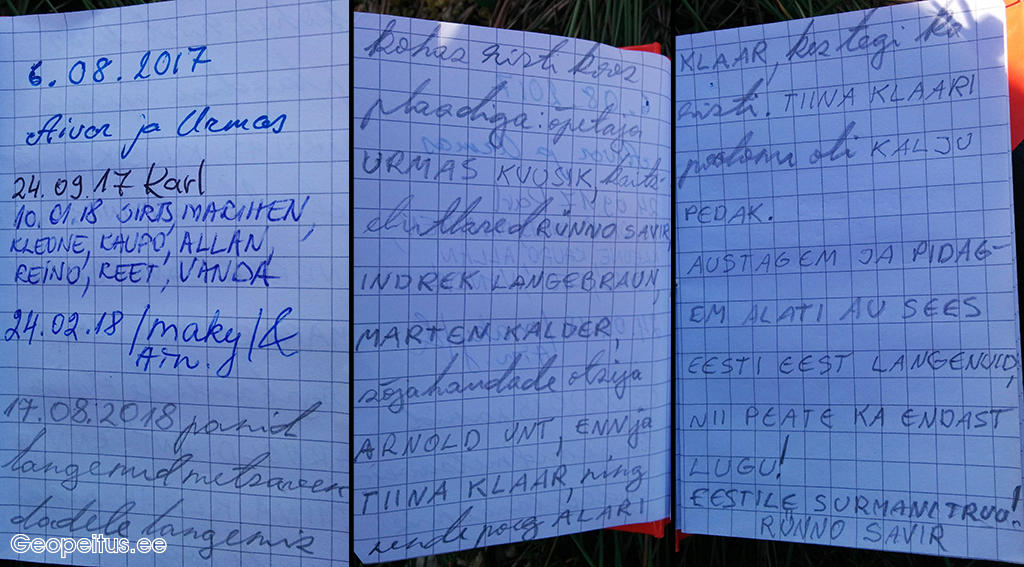 6.08.2017
Aivar ja Urmas
24.09.17 Karl
10.01.18 SIRTS, MARIHEN,
KLEONE, KAUPO, ALLAN,
REINO, REET, VANDA
24.02.18 /maky/ &
17.08.2018 panid
langenud metsaven
dadele langemis
Geopeitus.ee
kohas risti koos
plaadiga: õpetaja
URMAS KUUSIK, kaitse-
liitlased RÜNNO SAVIR
INDREK LANGEBRAUN,
MARTEM KALDER,
sõjahaudade otsija
ARNOLD UNT, ENN ja
TIINA KLAAR, ning
nende poeg ALARI
KLAAR, kes tegi ka
risti. TIINA KLAARI
poolonu oli KALJU
PEDAK.
AUSTAGEM JA PIDAG-
EM ALATI AU SEES
EESTI EEST LANGENUID,
NII PEATE KA ENDAST
LUGU!
EESTILE SURMANI TRUU!
RÜNNO SAVIR